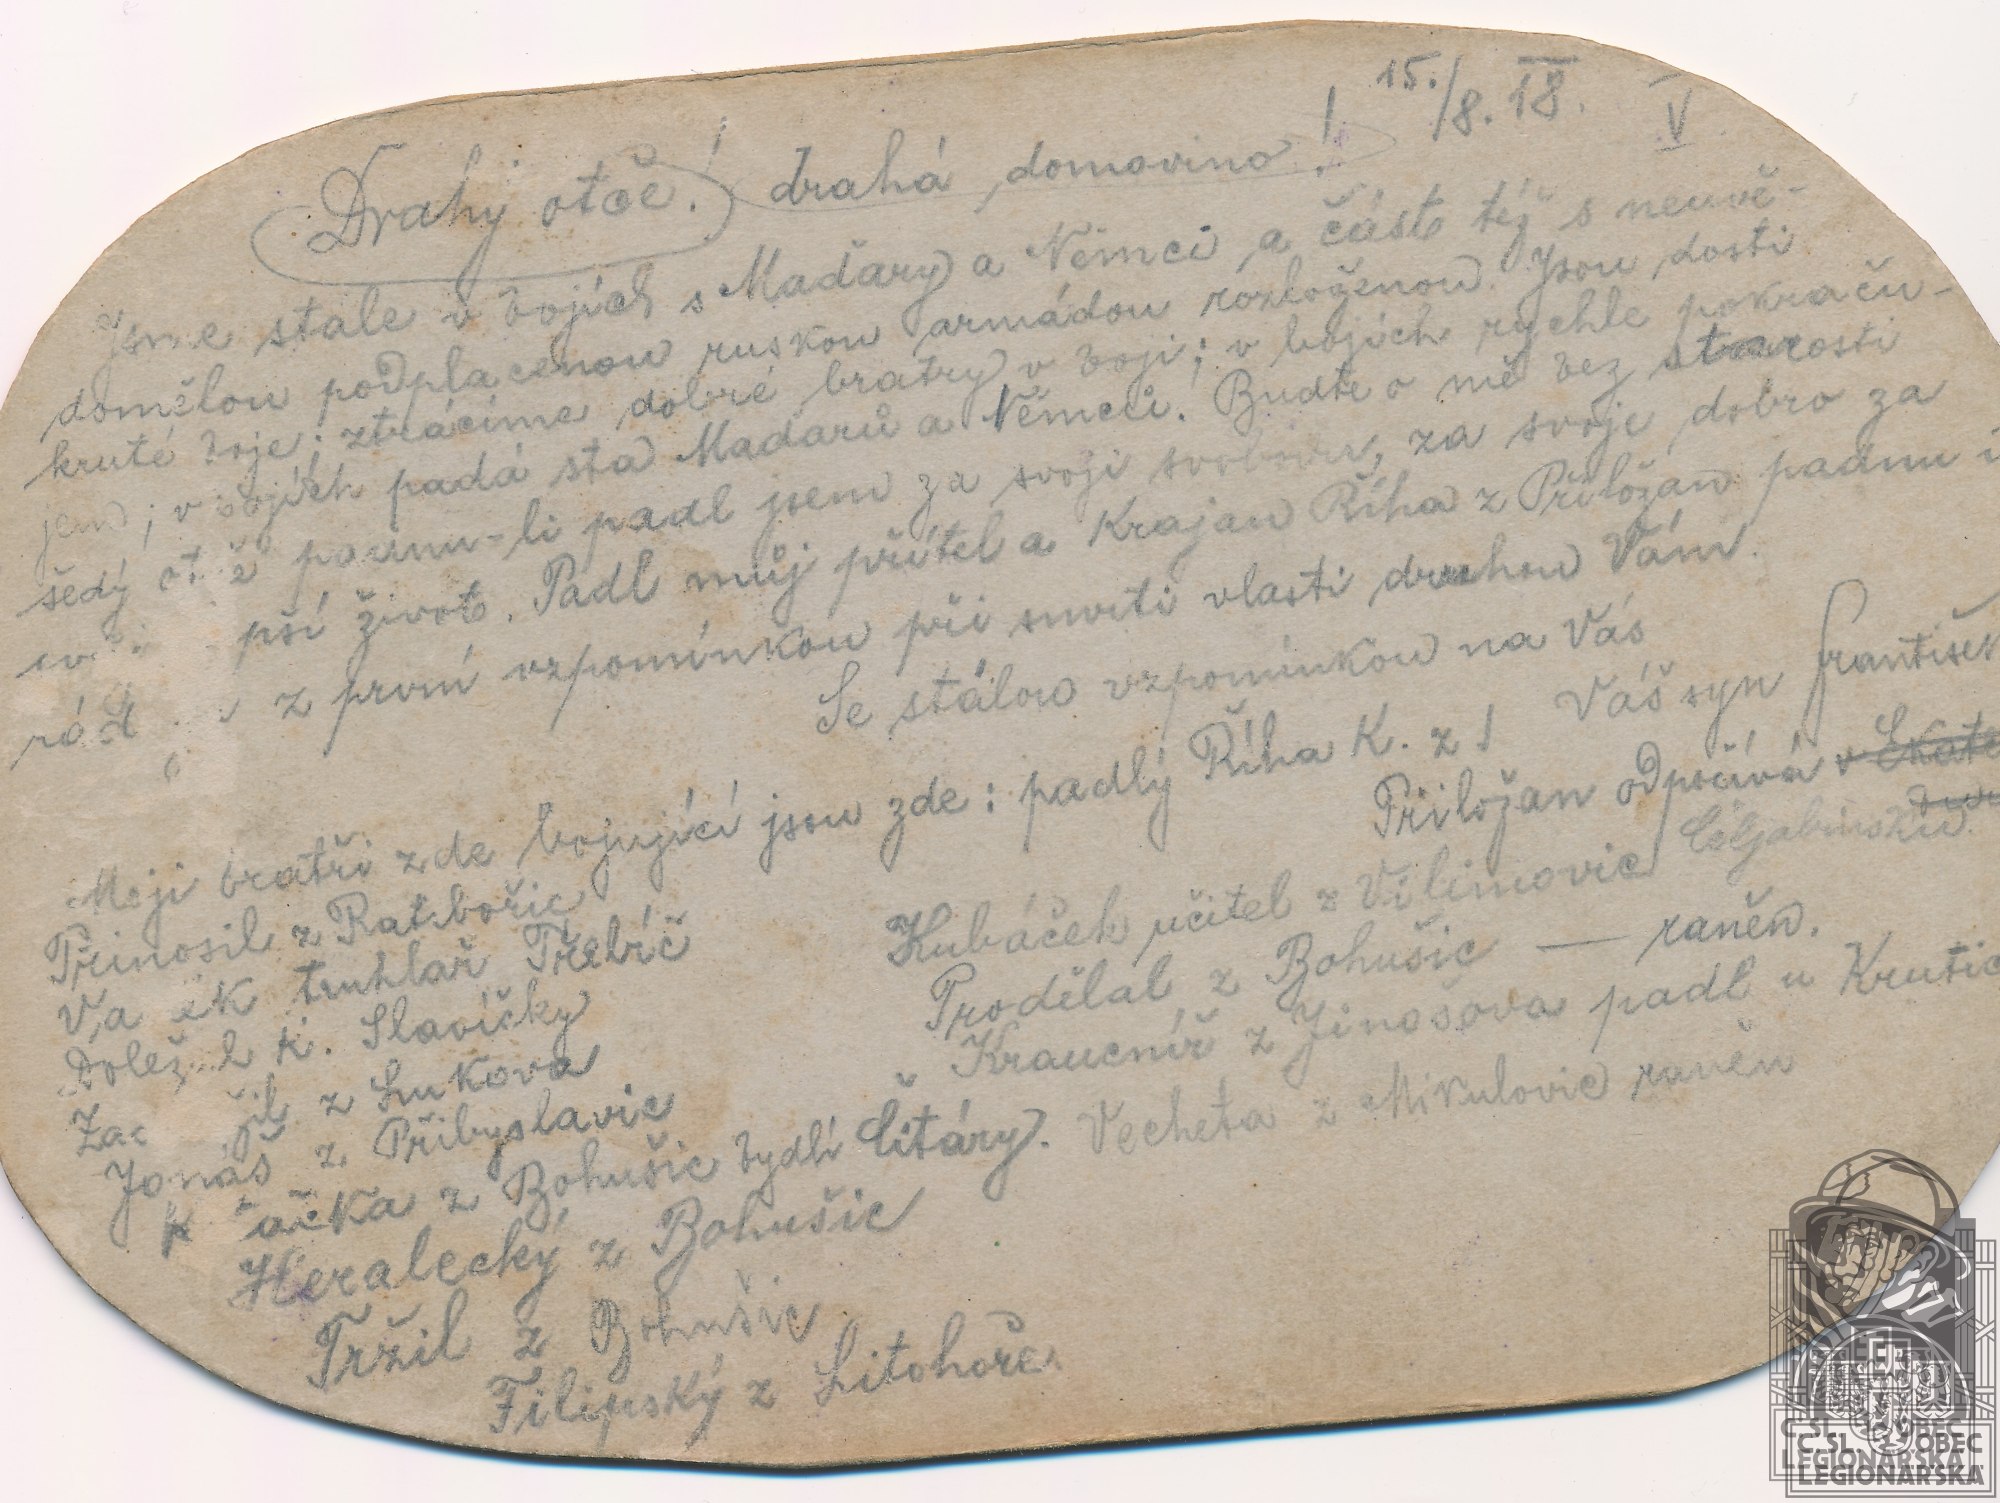 15./8. 18. V
Drahý otče! drahá domovino!
Jsme stale v bojích s Maďary a Němci a část též s neuvě-
domělou podplacenou ruskou armádou rozloženou. Jsou dosti
kruté boje; ztrácíme dobré bratry v boji; v bojích rychle pokraču-
jem; v bojích padá sta Maďarů a Němců. Buďte o mě bez starosti
šedý padnu-li padl jsem za svoji svobodu, za svoje dobro za
pší život. Padl můj přítel a Krajan Říha z Přiložan padnu i
z první vzpomínkou při smrti vlasti druhou Vám.
Se stálou vzpomínkou na Vás
Váš syn František
Moji bratři zde bojující jsou zde: padlý Říha K. z
Přiložan odpočívá v
Čeljabinsku.
Přinosil z Ratibořic
truhlař Třebíč
K. Slavíčky
z Lukova
Jonáš z Přibyslavic
z Bohušic bydlí Čitáry.
Heralecký z Bohušic
Tržil z Bohušic
Filipský z Litohoře
Kubáček učitel z Vilimovic
Prodělal z Bohušic — raněn.
Kraucníř z Jinošova padl u Krutic
Vecheta z Mikulovic raněn
Č.SL. OBEC
LEGIONÁŘSKÁ